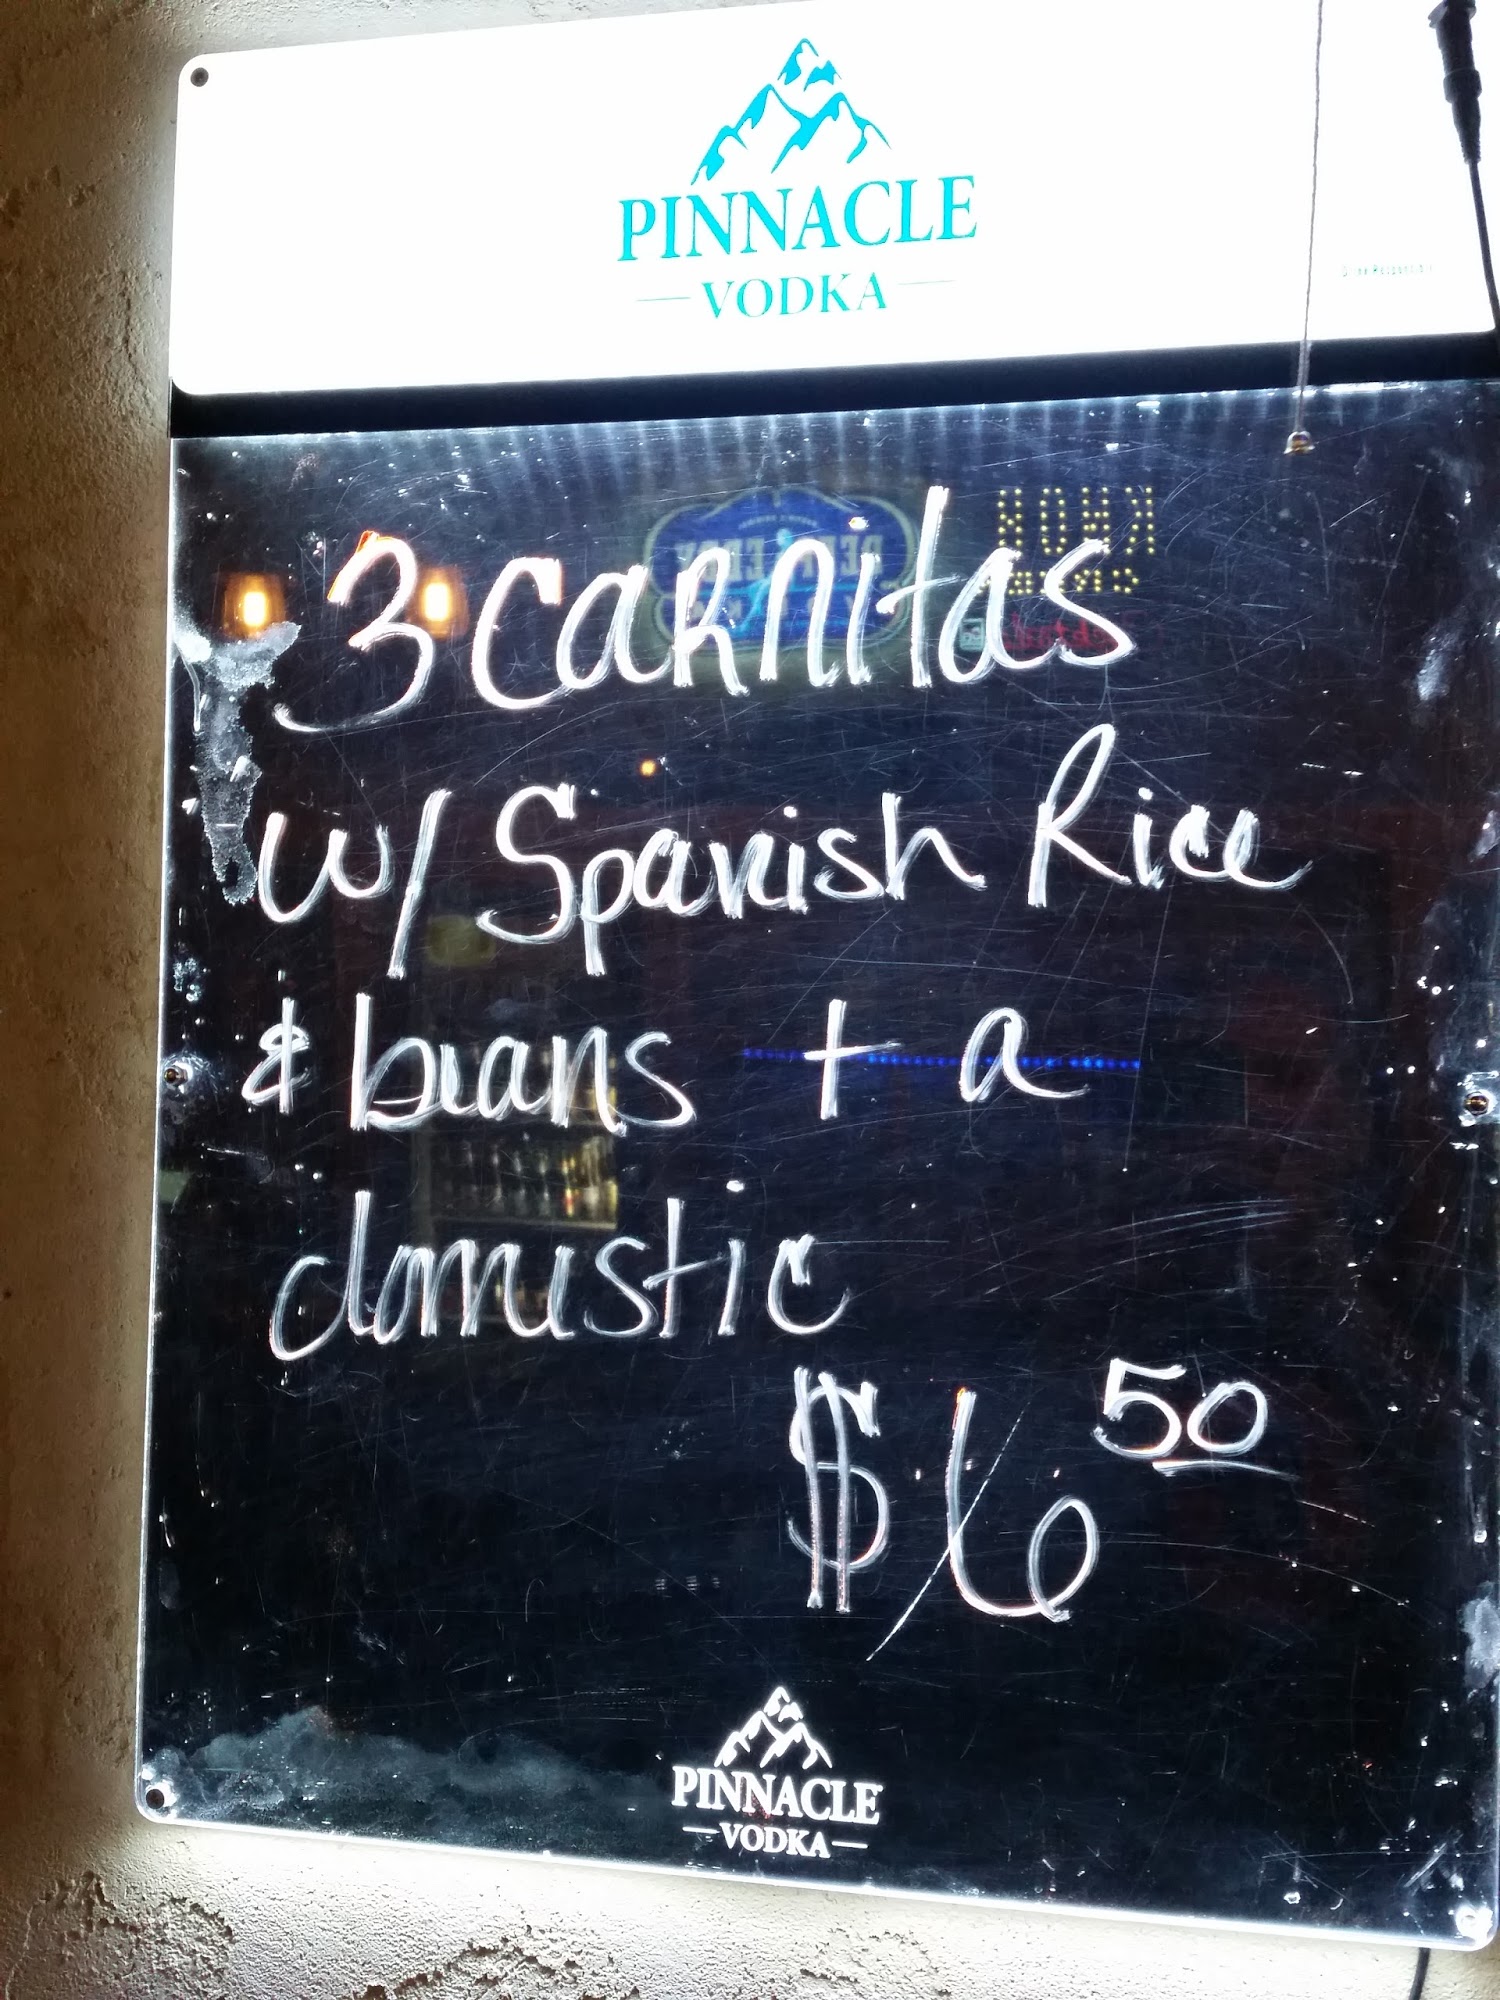 PINNACLE
VODKA
3 CARnitas
w/ Spanish Rice
& beans + a
domestic
$6 50
PINNACLE
VODKA